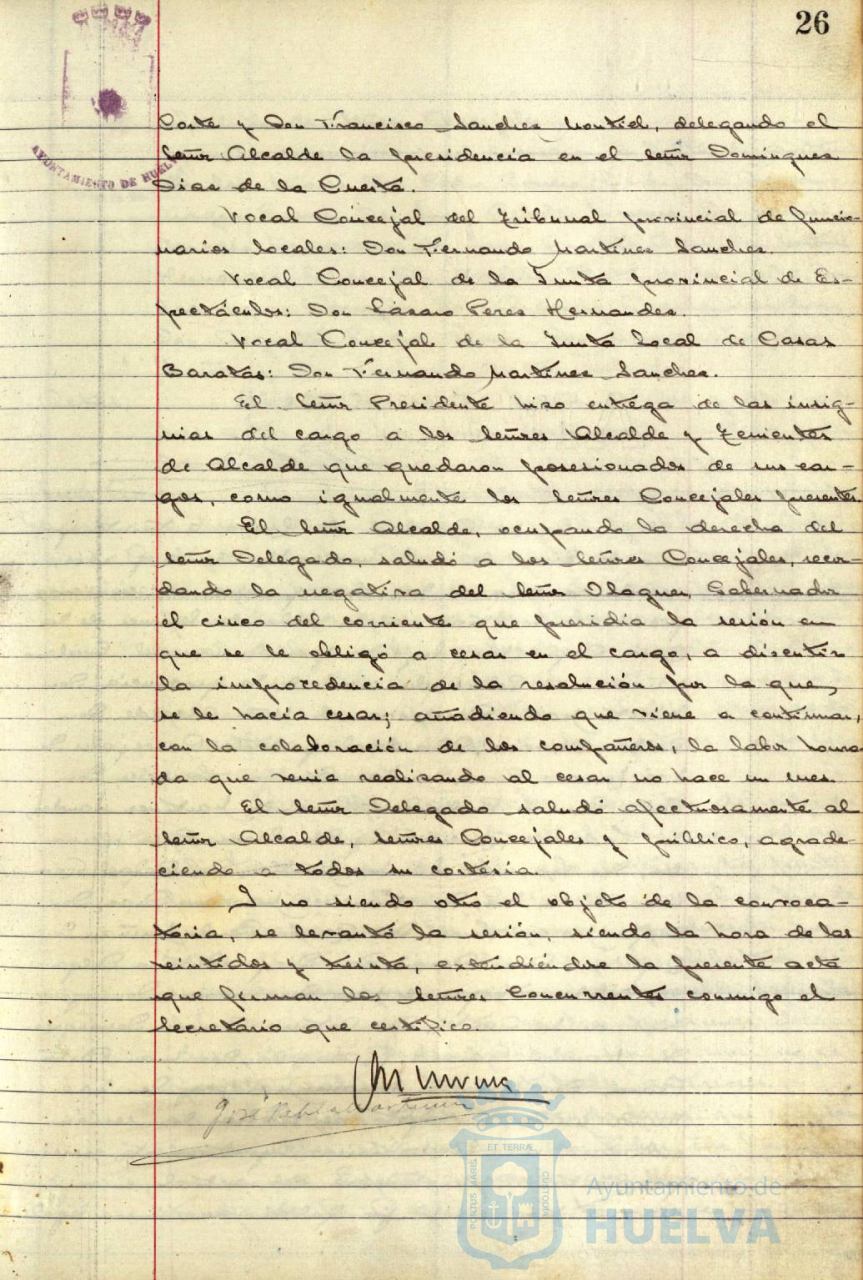 26
AYUNTAMIENTO DE HUELVA
Corte y Don Francisco Sanchez Montiel, delegando el
Señor Alcalde la presidencia en el señor Dominguez
Diaz de la Cuesta.
Vocal Concejal del Tribunal provincial de funcio-
narios locales: Don Fernando Martinez Sanchez.
Vocal Concejal de la Junta provincial de Es-
pectáculos: Don Lázaro Perez Hernandez.
Vocal Concejal de la Junta local de Casas
Baratas: Don Fernando Martinez Sanchez.
El Señor Presidente hizo entrega de las insig-
nias del cargo a los Señores Alcalde y Tenientes
de Alcalde que quedaron posesionados de sus car-
gos, como igualmente los Señores Concejales presentes.
El Señor Alcalde, ocupando la derecha del
Señor Delegado, saludó a los Señores Concejales, recor-
dando la negativa del Señor Olaguer, Gobernador
el cinco del corriente que presidia la sesión en
que se le obligó a cesar en el cargo, a discutir
la improcedencia de la resolución por la que,
se le hacia cesar; añadiendo que viene a continuar,
con la colaboración de los compañeros, la labor honra-
da que venia realizando al cesar no hace un mes.
El Señor Delegado saludó afectuosamente al
Señor Alcalde, Señores Concejales y público, agrade-
ciendo a todos su cortesia.
I no siendo otro el objeto de la convoca-
toria, se levantó la sesión, siendo la hora de las
veintidos y treinta, extendiéndose la presente acta
que firman los Señores Concurrentes conmigo el
Secretario que certifico.
José
PORTUS MARIS ET TERRAE CUSTODIA
Ayuntamiento de
HUELVA